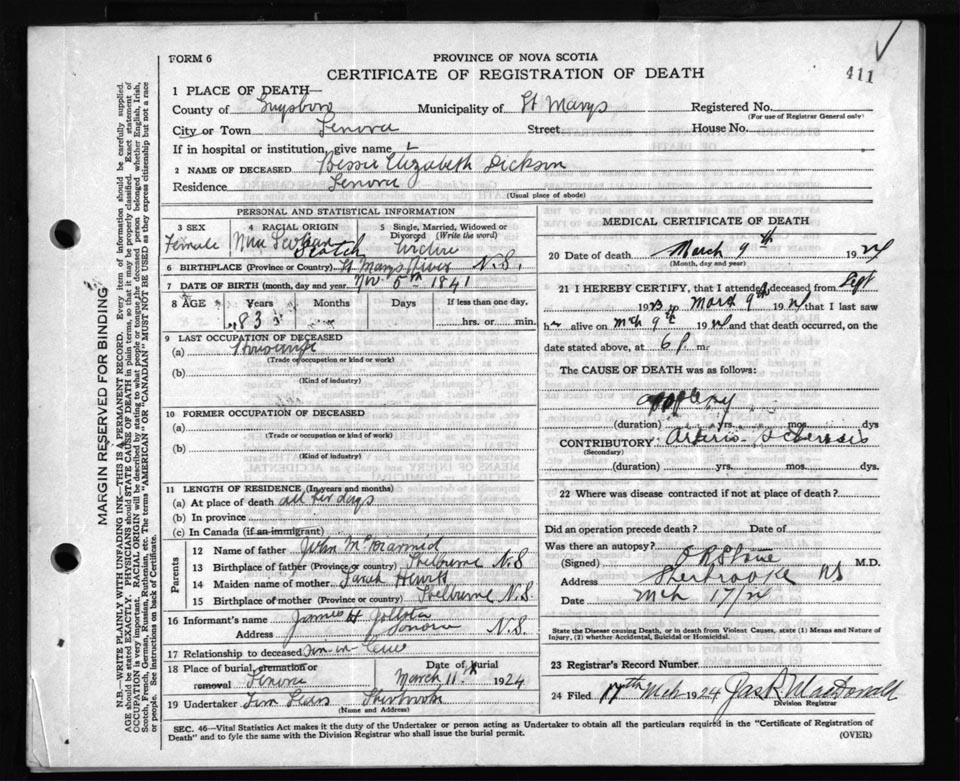 FORM 6
PROVINCE OF NOVA SCOTIA
CERTIFICATE OF REGISTRATION OF DEATH
411
1 PLACE OF DEATH—
County of Guysboro Municipality of St Marys Registered No.
(For use of Registrar General only)
City or Town Street House No.
If in hospital or institution, give name
2 NAME OF DECEASED Bessie Elizabeth Dickson
Residence
(Usual place of abode)
PERSONAL AND STATISTICAL INFORMATION
3 SEX 4 RACIAL ORIGIN 5 Single, Married, Widowed or Divorced (Write the word)
Female Scotch
6 BIRTHPLACE (Province or Country) St Marys River N.S.
7 DATE OF BIRTH (month, day and year) 1841
8 AGE Years Months Days If less than one day,
83 hrs. or min.
9 LAST OCCUPATION OF DECEASED
(a)
(Trade or occupation or kind or work)
(b)
(Kind of industry)
10 FORMER OCCUPATION OF DECEASED
(a)
(Trade or occupation or kind of work)
(b)
(Kind of industry)
11 LENGTH OF RESIDENCE (In years and months)
(a) At place of death all her days
(b) In province
(c) In Canada (if an immigrant)
Parents
12 Name of father John McDiarmid
13 Birthplace of father (Province or country) Shelburne N.S
14 Maiden name of mother Sarah Hewitt
15 Birthplace of mother (Province or country) Shelburne N.S.
16 Informant's name James H
Address N.S.
17 Relationship to deceased Son in Law
18 Place of burial, cremation or removal Date of burial
March 11th 1924
19 Undertaker Sherbrooke
(Name and Address)
MEDICAL CERTIFICATE OF DEATH
20 Date of death March 9th 1924
(Month, day and year)
21 I HEREBY CERTIFY, that I attended deceased from Sept
1923 to March 9th 1924 that I last saw
h alive on Mch 9th 1924 and that death occurred, on the
date stated above, at 6 p m.
The CAUSE OF DEATH was as follows:
apoplexy
(duration) yrs. mos. dys
CONTRIBUTORY Arterio Sclerosis
(Secondary)
(duration) yrs. mos. dys.
22 Where was disease contracted if not at place of death?
Did an operation precede death? Date of
Was there an autopsy?
(Signed) M.D.
Address Sherbrooke NS
Date Mch 17/24
State the Disease causing Death, or in death from Violent Causes, state (1) Means and Nature of
Injury, (2) whether Accidental, Suicidal or Homicidal.
23 Registrar's Record Number
24 Filed 17th Mch 1924 Jas R MacDonald
Division Registrar
SEC. 46—Vital Statistics Act makes it the duty of the Undertaker or person acting as Undertaker to obtain all the particulars required in the "Certificate of Registration of
Death" and to fyle the same with the Division Registrar who shall issue the burial permit. (OVER)
MARGIN RESERVED FOR BINDING
N.B.—WRITE PLAINLY WITH UNFADING INK—THIS IS A PERMANENT RECORD. Every item of information should be carefully supplied.
AGE should be stated EXACTLY. PHYSICIANS should STATE CAUSE OF DEATH in plain terms, so that it may be properly classified. Exact statement of
OCCUPATION is very important. RACIAL ORIGIN will be described by stating to what people or tongue the deceased person belonged whether English, Irish,
Scotch, French, German, Russian, Ruthenian, etc. The terms "AMERICAN" OR "CANADIAN" MUST NOT BE USED as they express citizenship but not a race
or people. See instructions on back of Certificate.